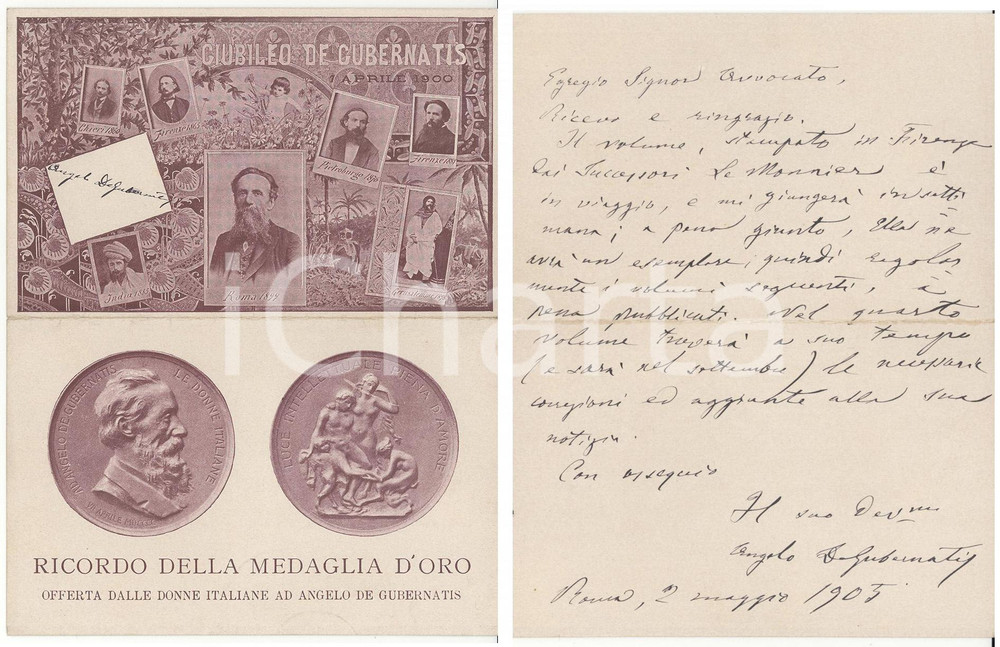 GIUBILEO DE GUBERNATIS
1 APRILE 1900
Chieri 1860
Firenze 1865
Pietroburgo 1876
Firenze 1881
Angelo DeGubernatis
India 1885
Roma 1899
RICORDO DELLA MEDAGLIA D'ORO
OFFERTA DALLE DONNE ITALIANE AD ANGELO DE GUBERNATIS
AD ANGELO DE GUBERNATIS LE DONNE ITALIANE
VII APRILE
LUCE INTELLETTUALE PIENA D'AMORE
iCharta
Egregio Signor Avvocato,
Ricevo e ringrazio.
Il volume, stampato in Firenze
dai Successori Le Monnier è
in viaggio, e mi giungerà in setti
mana; a pena giunto, Ella ne
avrà un esemplare; quindi regolar
mente i volumi seguenti, a
pena pubblicati. Nel quarto
volume troverà a suo tempo
(e sarà nel settembre) le necessarie
correzioni ed aggiunte alla sua
notizia.
Con ossequio
Il suo Devmo
Angelo DeGubernatis
Roma, 2 maggio 1905